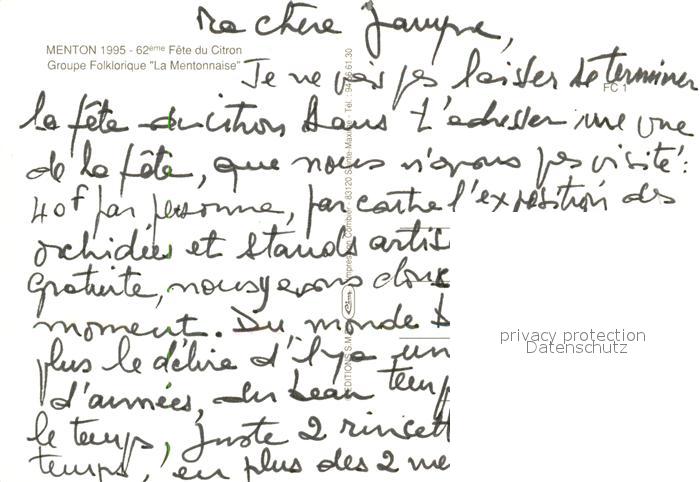 Ma chère Jannine,
MENTON 1995 - 62ème Fête du Citron
Groupe Folklorique "La Mentonnaise"
Je ne vais pas laisser se terminer
FC 1
la fête du citron sans t'adresser une vue
de la fête, que nous n'avons pas visité:
40f par personne, par contre l'exposition des
orchidées et stands artis
gratuite, nous y avons donc
moment. Du monde
plus le délire d'il y a un
d'années, du beau temp
le temps, juste 2 rincett
temps, en plus des 2 me
EDITIONS S.M.
Impression Combier 83120 Sainte-Maxime - Tél. 94 96 61 30
privacy protection
Datenschutz